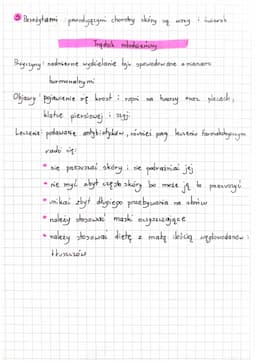 Pasożytami powodującymi choroby skóry są wszy i świerzb
Trądzik młodzieńczy
Przyczyny: nadmierne wydzielanie łoju spowodowane zmianami
hormonalnymi
Objawy: pojawienie się krost i ropni na twarzy oraz plecach,
klatce piersiowej i szyi
Leczenie: podawanie antybiotyków, również przy leczeniu farmakologicznym
radzi się:
• nie pocierać skóry i nie podrażniać jej
• nie myć zbyt często skóry bo może ją to przesuszyć
• unikać zbyt długiego przebywania na słońcu
• należy stosować maski oczyszczające
• należy stosować dietę z małą ilością węglowodanów i
tłuszczów